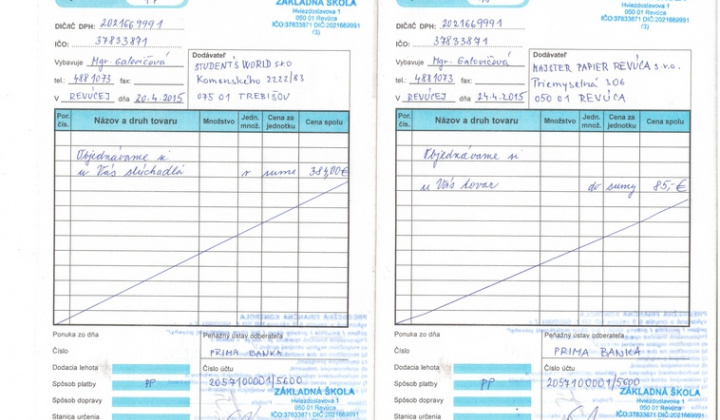 ZÁKLADNÁ ŠKOLA
Hviezdoslavova 1
050 01 Revúca
IČO:37833871 DIČ:2021669991
(3)
DIČ/IČ DPH: 2021669991
IČO: 37833871
Vybavuje Mgr. Galovičová
tel.: 4881073 fax:
V REVÚCEJ dňa 20.4.2015
Dodávateľ
STUDENT'S WORLD SKO
Komenského 2222/83
075 01 TREBIŠOV
Por. čís.
Názov a druh tovaru
Množstvo
Jedn. množ.
Cena za jednotku
Cena spolu
Objednávame si
u Vás slúchadlá v sume 384,00€
Ponuka zo dňa
Číslo
Dodacia lehota
Spôsob platby PP
Spôsob dopravy
Stanica určenia
Peňažný ústav odberateľa
PRIMA BANKA
Číslo účtu
2057100001/5600
ZÁKLADNÁ ŠKOLA
Hviezdoslavova 1
050 01 Revúca
IČO:37833871 DIČ:2021669991
ZÁKLADNÁ ŠKOLA
Hviezdoslavova 1
050 01 Revúca
IČO:37833871 DIČ:2021669991
(3)
DIČ/IČ DPH: 2021669991
IČO: 37833871
Vybavuje Mgr. Galovičová
tel.: 4881073 fax:
V REVÚCEJ dňa 24.4.2015
Dodávateľ
MAJSTER PAPIER REVÚCA s.r.o.
Priemyselná 306
050 01 REVÚCA
Por. čís.
Názov a druh tovaru
Množstvo
Jedn. množ.
Cena za jednotku
Cena spolu
Objednávame si
u Vás tovar do sumy 85,-€
Ponuka zo dňa
Číslo
Dodacia lehota
Spôsob platby PP
Spôsob dopravy
Stanica určenia
Peňažný ústav odberateľa
PRIMA BANKA
Číslo účtu
2057100001/5600
ZÁKLADNÁ ŠKOLA
Hviezdoslavova 1
050 01 Revúca
IČO:37833871 DIČ:2021669991